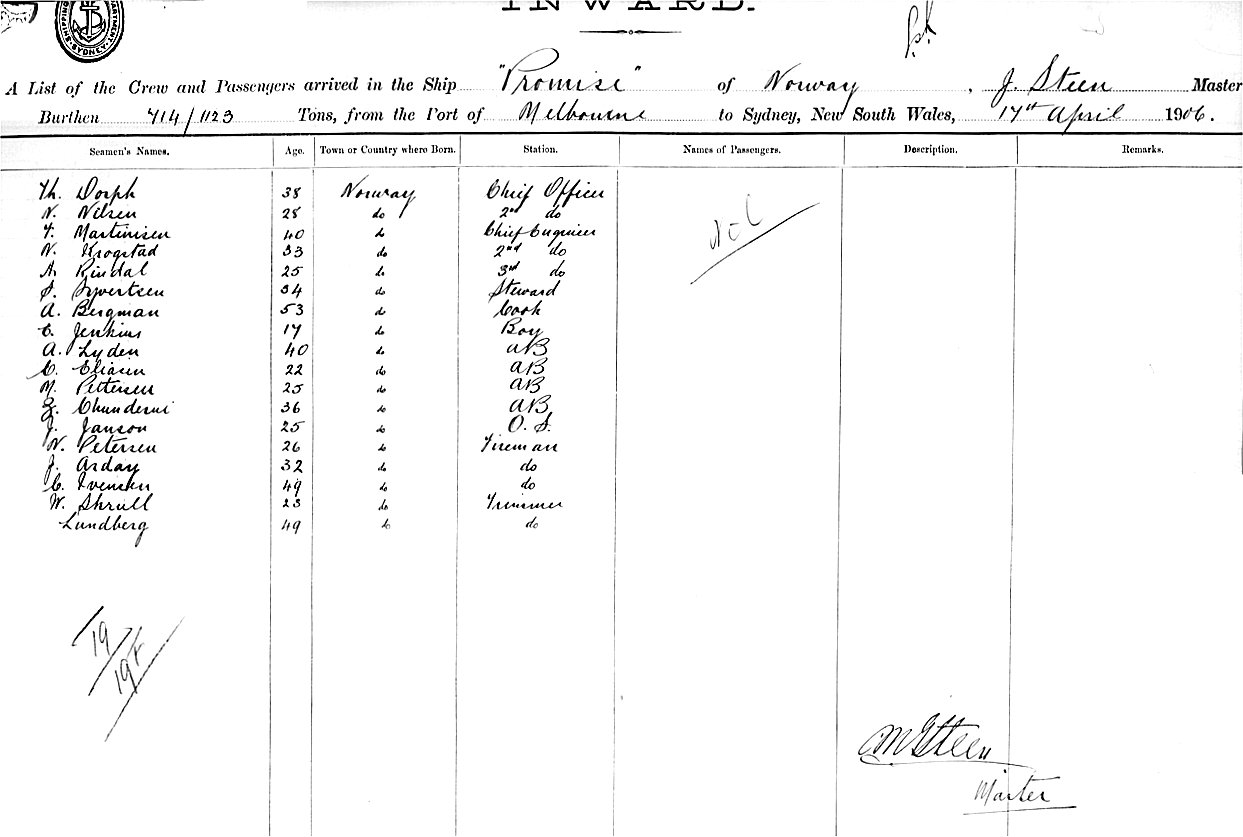 INWARD.
SHIPPING DEPARTMENT SYDNEY
A List of the Crew and Passengers arrived in the Ship "Promise" of Norway, J. Steen Master
Burthen 714/1123 Tons, from the Port of Melbourne to Sydney, New South Wales, 17th April 1906.
Seamen's Names. Age. Town or Country where Born. Station. Names of Passengers. Description. Remarks.
Th. Dorph 38 Norway Chief Officer
N. Nilsen 28 do 2nd do
F. Martinisen 40 do Chief Engineer
N. Krogstad 33 do 2nd do
A. Rindal 25 do 3rd do
S. Syvertsen 34 do Steward
A. Bergman 53 do Cook
C. Jenkins 17 do Boy
A. Lyden 40 do AB
C. Eliasen 22 do AB
M. Pettersen 25 do AB
36 do AB
J. Janson 25 do O.S.
N. Petersen 26 do Fireman
J. Arday 32 do do
C. Ivensen 49 do do
W. Skrull 23 do Trimmer
Lundberg 49 do do
Nil
19
19
M Steen
Master